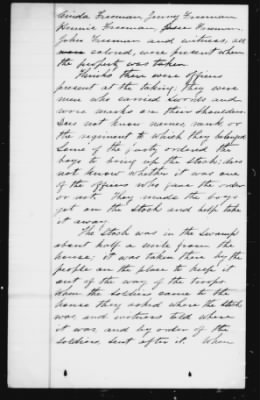 Cinda Freeman Jenny Freeman
Bennie Freeman, Jesse Freeman
John Freeman and witness, all
colored, were present when
the property was taken.
Thinks there were officers
present at the taking; they were
men who carried swords and
wore marks on their shoulders.
Does not know names, rank or
the regiment to which they belonged
Some of the party ordered the
boys to bring up the stock; does
not know whether it was one
of the officers who gave the order
or not. They made the boys
get on the stock and help take
it away.
The stock was in the swamp
about half a mile from the
house; it was taken there by the
people on the place to keep it
out of the way of the troops.
When the soldiers came to the
house they asked where the stock
was and witness told where
it was and by order of the
soldiers sent after it. When